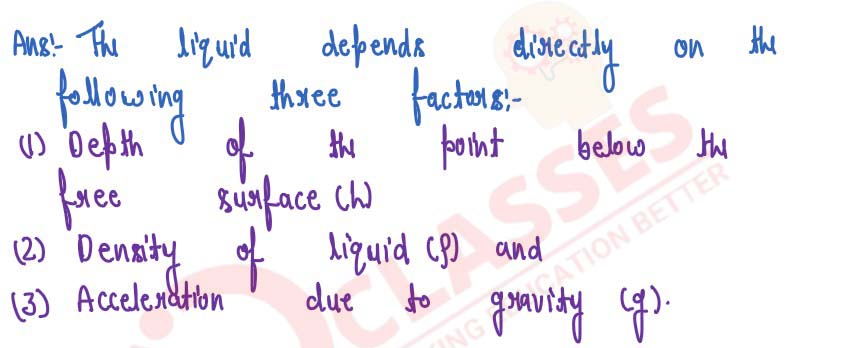 Ans:- The liquid depends directly on the
following three factors:-
(1) Depth of the point below the
free surface (h)
(2) Density of liquid (ρ) and
(3) Acceleration due to gravity (g).
CLASSES
EDUCATION BETTER